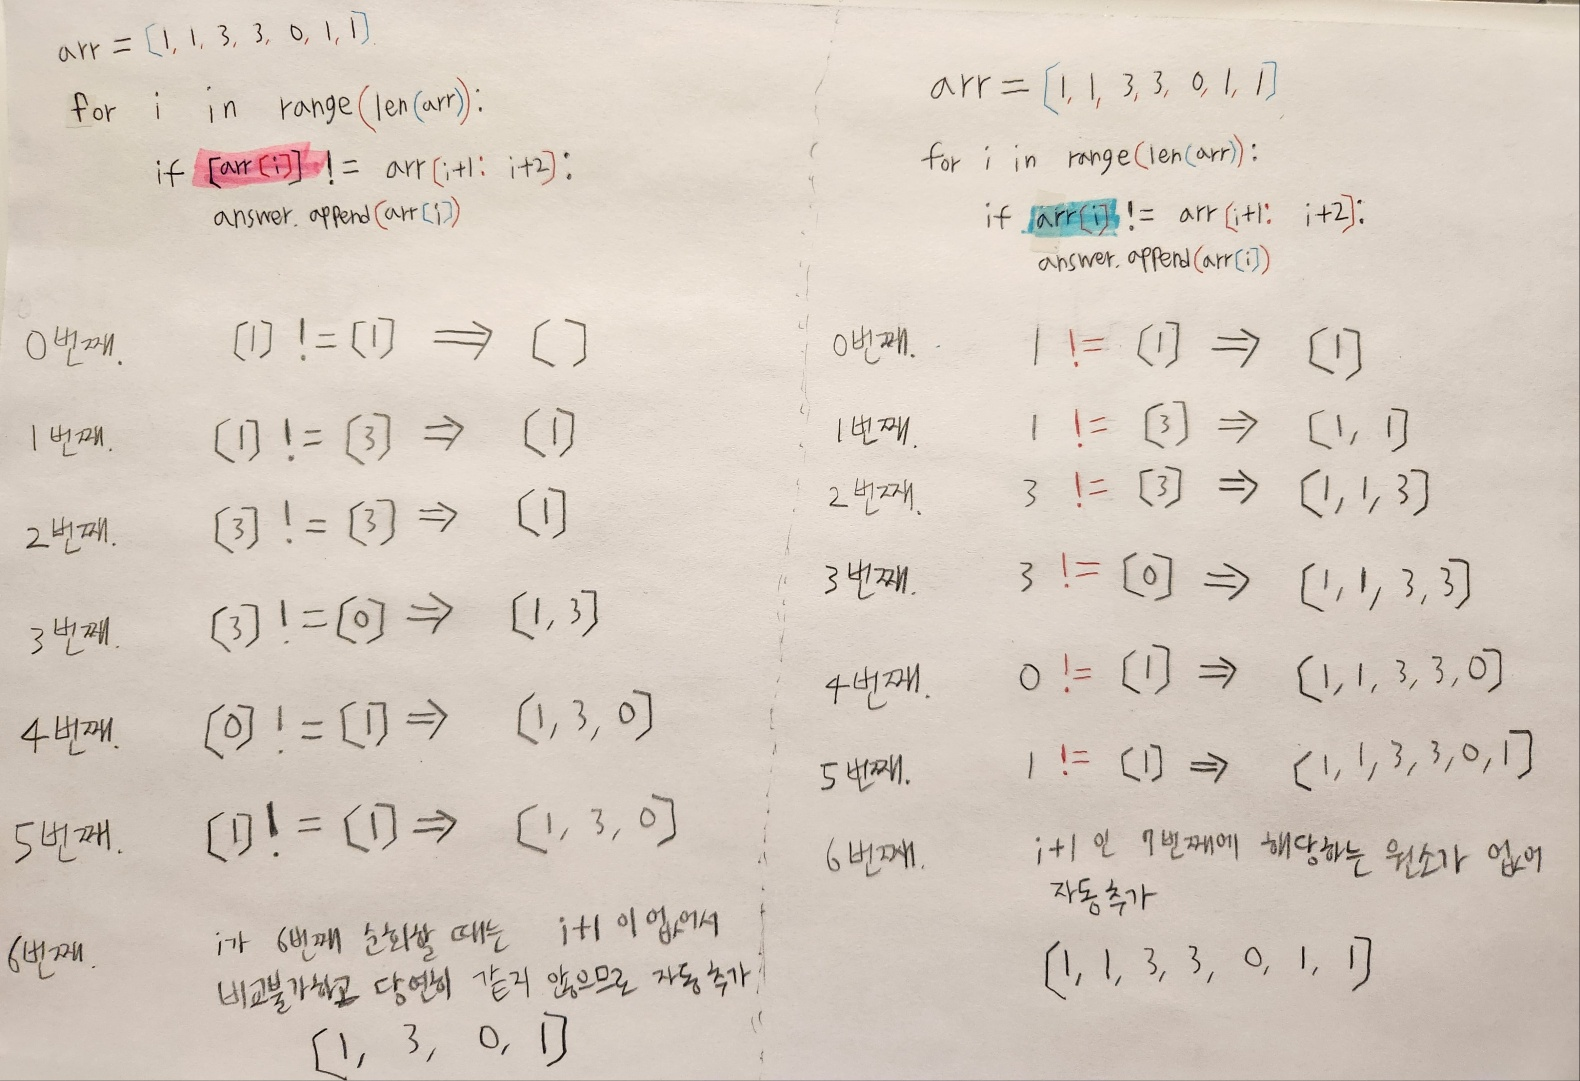 arr = [1, 1, 3, 3, 0, 1, 1]
for i in range(len(arr):
if [arr[i]] != arr[i+1: i+2]:
answer.append(arr[i])
0번째. [1] != [1] ⇒ [ ]
1번째. [1] != [3] ⇒ [1]
2번째. [3] != [3] ⇒ [1]
3번째. [3] != [0] ⇒ [1, 3]
4번째. [0] != [1] ⇒ [1, 3, 0]
5번째. [1] != [1] ⇒ [1, 3, 0]
6번째. i가 6번째 순회할 때는 i+1이 없어서
비교불가하고 당연히 같지 않으므로 자동추가
[1, 3, 0, 1]
arr = [1, 1, 3, 3, 0, 1, 1]
for i in range(len(arr)):
if arr[i] != arr[i+1: i+2]:
answer.append(arr[i])
0번째. 1 != [1] ⇒ [1]
1번째. 1 != [3] ⇒ [1, 1]
2번째. 3 != [3] ⇒ [1, 1, 3]
3번째. 3 != [0] ⇒ [1, 1, 3, 3]
4번째. 0 != [1] ⇒ [1, 1, 3, 3, 0]
5번째. 1 != [1] ⇒ [1, 1, 3, 3, 0, 1]
6번째. i+1 인 7번째에 해당하는 원소가 없어
자동추가
[1, 1, 3, 3, 0, 1, 1]